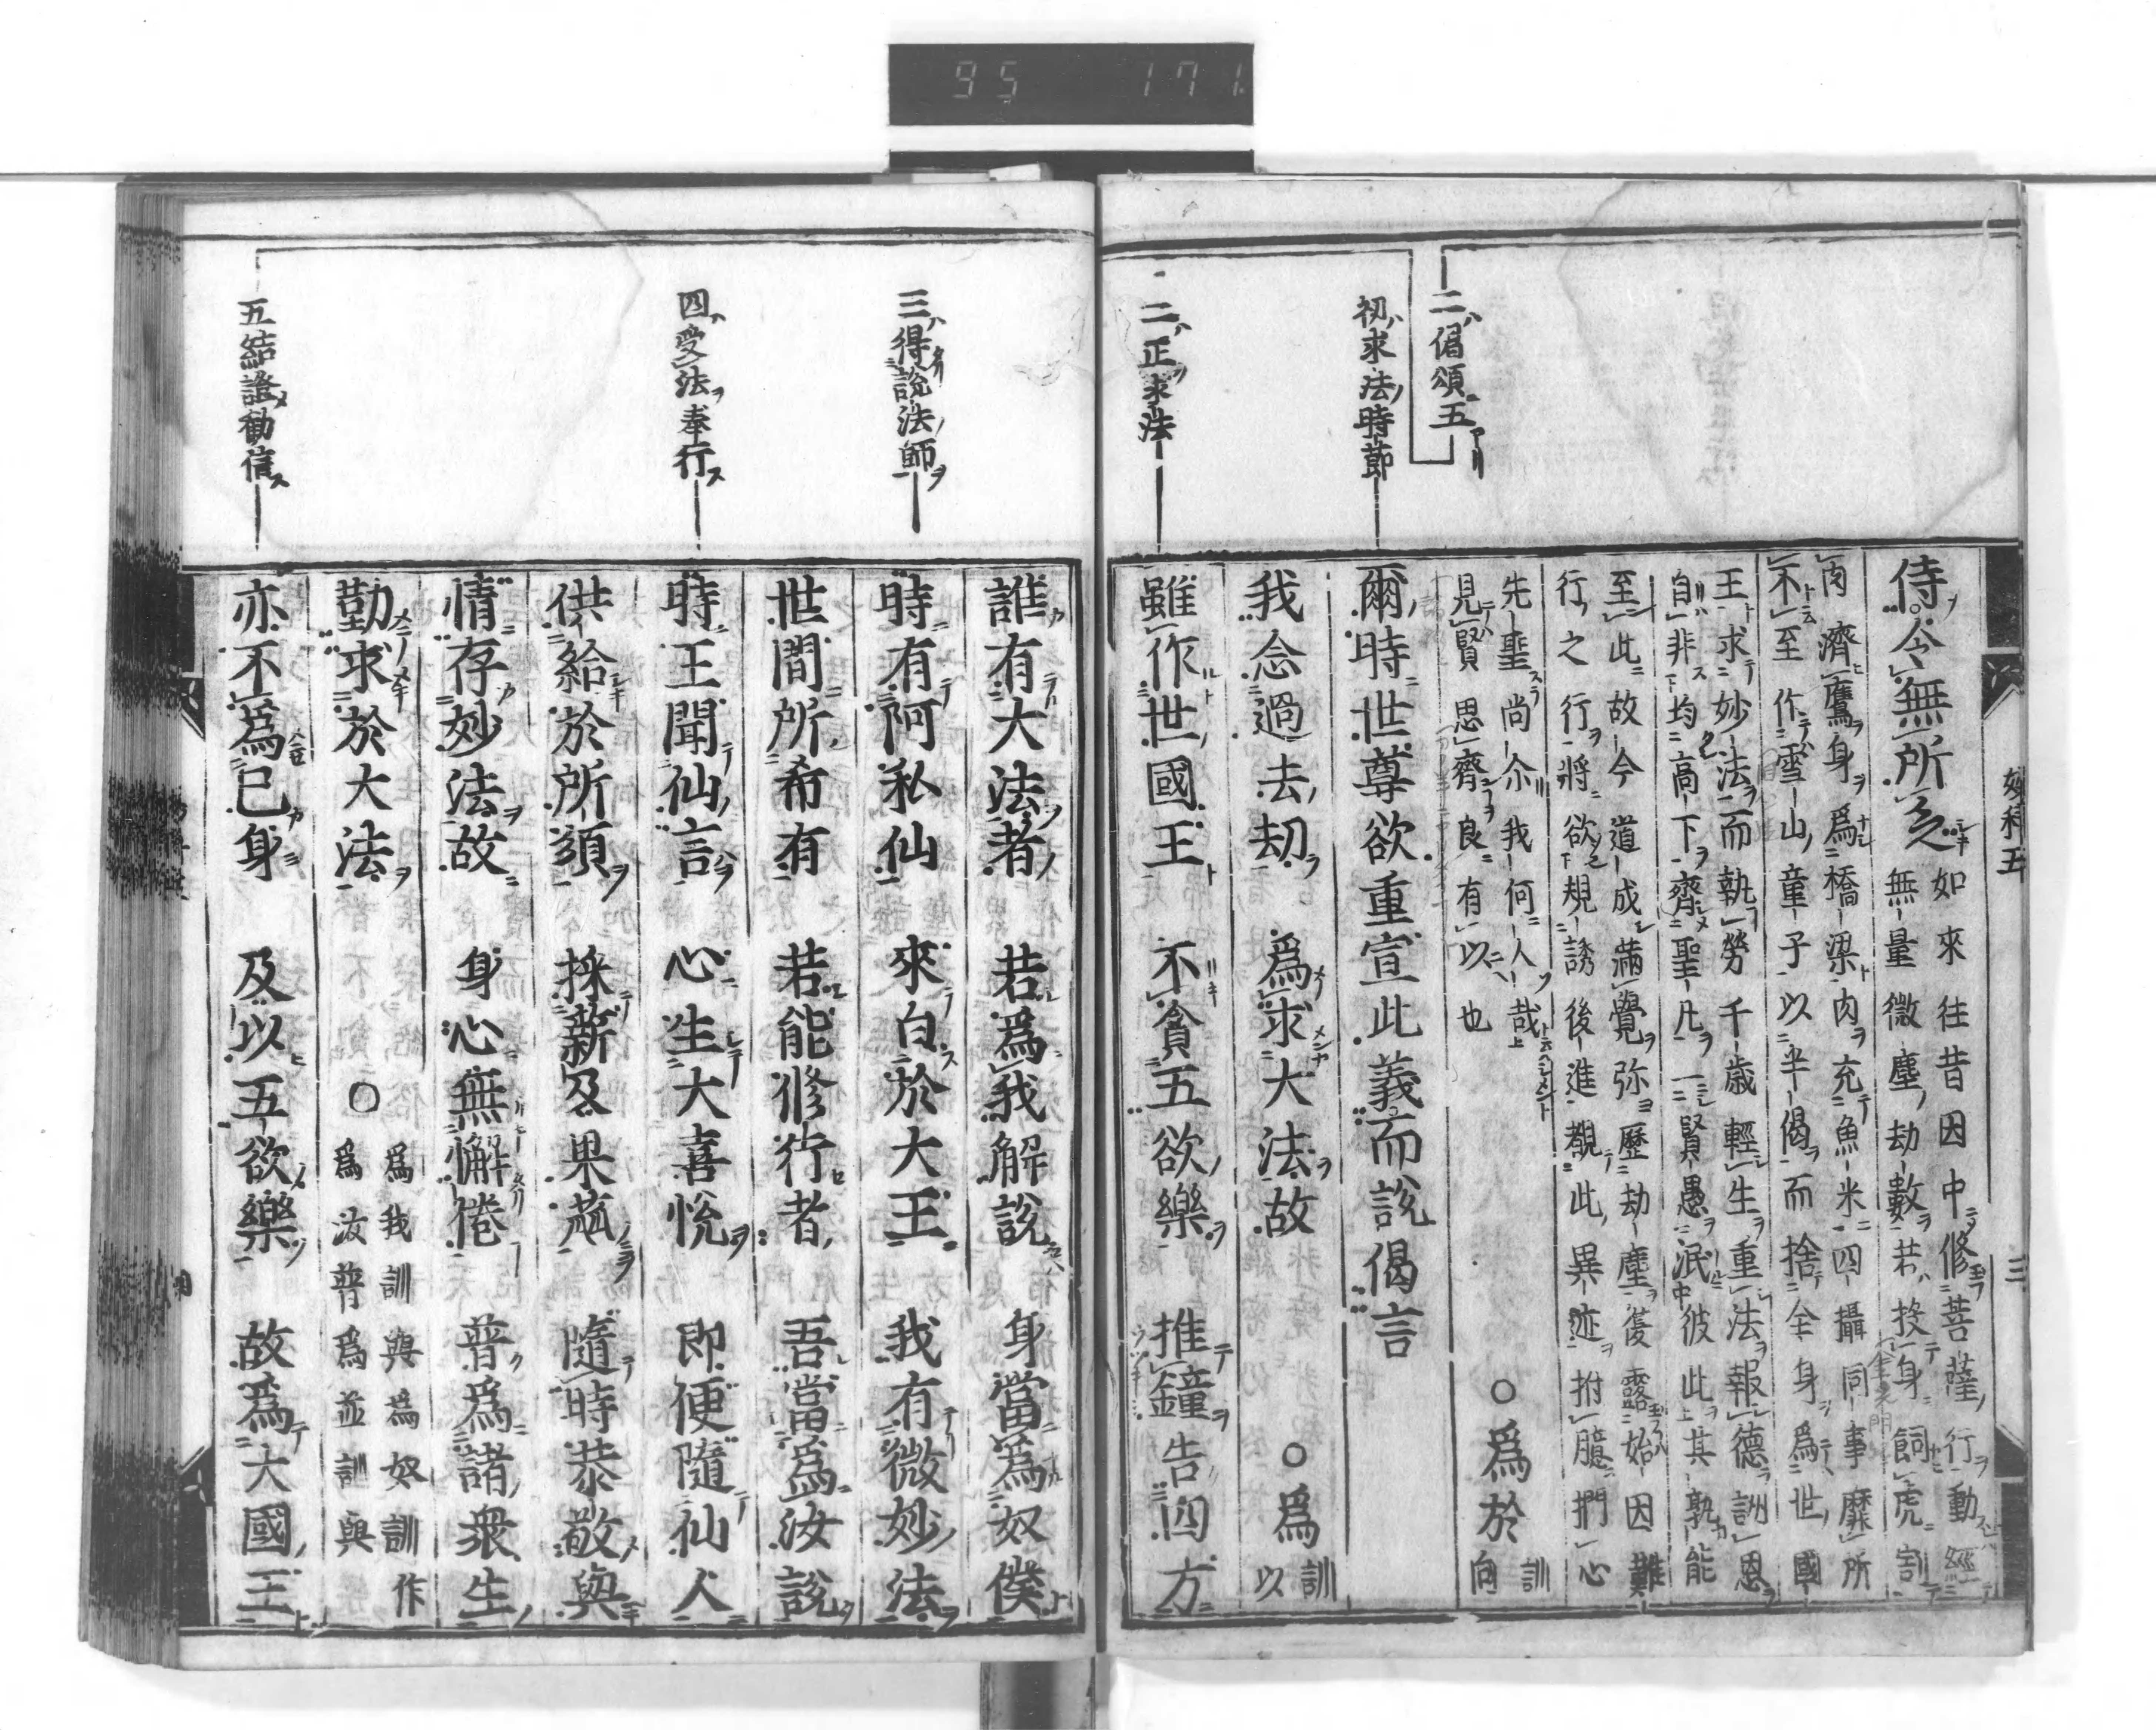 95 171
二偈頌五
初求法時節
二正求法
妙科五
三
侍令無所乏
如來往昔因中修菩薩行動經
無量微塵劫數若投身飼虎割
肉濟鷹身為橋梁肉充魚米四攝同事靡所
不至作雪山童子以半偈而捨全身為世國
王求妙法而執勞千歲輕生重法報德訓恩
自非均高下齊聖凡一賢愚泯彼此其孰能
至此故今道成滿覺弥歷劫塵復露始因難
行之行將欲規誘後進覩此異迹拊臆捫心
先聖尚尒我何人哉
見賢思齊良有以也
○為於
訓
向
爾時世尊欲重宣此義而說偈言
我念過去劫 為求大法故 ○為
訓
以
雖作世國王 不貪五欲樂 推鐘告四方
三得說法師
四受法奉行
五結證勸信
誰有大法者 若為我解說 身當為奴僕
時有阿私仙 來白於大王 我有微妙法
世間所希有 若能修行者 吾當為汝說
時王聞仙言 心生大喜悅 即便隨仙人
供給於所須 採薪及果蓏 隨時恭敬與
情存妙法故 身心無懈倦 普為諸衆生
勤求於大法 ○
為我訓與為奴訓作
為汝普為並訓與
亦不為己身 及以五欲樂 故為大國王